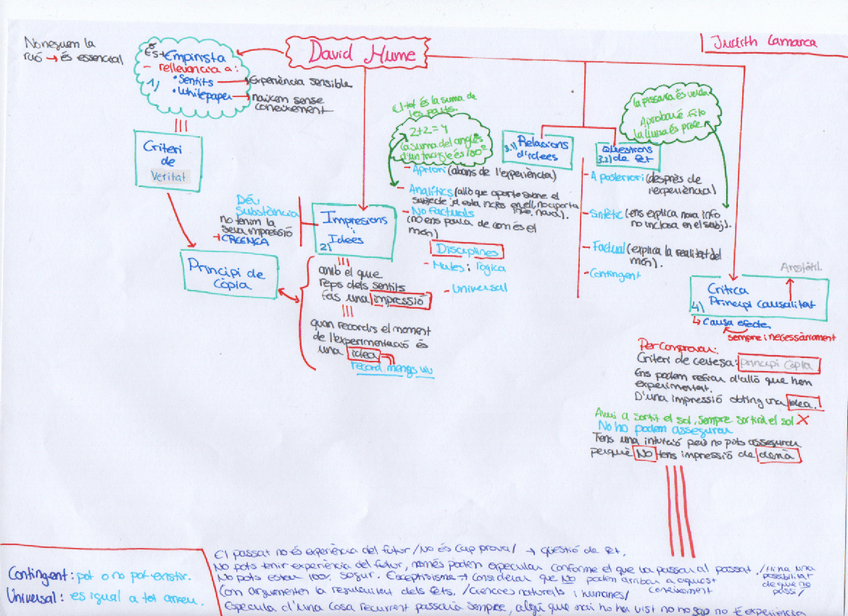 Judith Lamarca
David Hume
No neguem la
raó → és essencial
És + Empirista
- rellevancia a:
1)
• Sentits → experiència sensible
• Whitepaper → naixem sense
coneixement
Criteri
de
Veritat
Principi de
Còpia
Déu
Substància
no tenim la
seva impressió
→ CREENÇA
Impresions
i
Idees
2)
amb el que
reps dels sentits
fas una impressió
quan recordis el moment
de l'experimentació és
una idea
record menys viu
El tot és la suma de
les parts.
2+2=4
la suma del angles
d'un triangle és 180º
3.1) Relacions
d'idees
- Apriori (abans de l'experiència)
- Analítics (allò que aporto sobre el
subjecte ja està inclòs en ell, no aporta
info, nova).
- No Factuals
(no ens parla de com és el
món)
Disciplines
- Mates i lògica
- Universal
la pissarra és verda
Aprobaré filo
la lluna és
Qüestions
3.2) de fet
- A posteriori (després de
l'experiència)
- Sintètic (ens explica nova info
no inclosa en el subj).
- Factual (explica la realitat del
món).
- Contingent
Aristòtil
Crítica
4) Principi causalitat
↳ Causa efecte
sempre i necessàriament
Per comprovar:
Criteri de certesa: principi Còpia
Ens podem refiar d'allò que hem
experimentat.
D'una impressió obting una idea.
Avui a sortit el sol, sempre sortirà el sol X
No ho podem assegurar
Tens una intuició però no pots assegurar
perquè NO tens impressió de demà
Contingent: pot o no pot existir.
Universal: es igual a tot arreu.
El passat no és experiència del futur / No és Cap prova / → qüestió de fet.
No pots tenir experiència del futur, només podem especular conforme el que ha passat al passat / Hi ha una
possibilitat
de que no
passi /
No pots estar 100% segur. Escepticisme → Considerar que NO podem arribar a aquest
coneixement
Com argumentem la regularitat dels fets. / Ciències naturals i humanes /
Especula d'una cosa recurrent passaria sempre, algú que mai ho ha vist no ho sap no té experiència